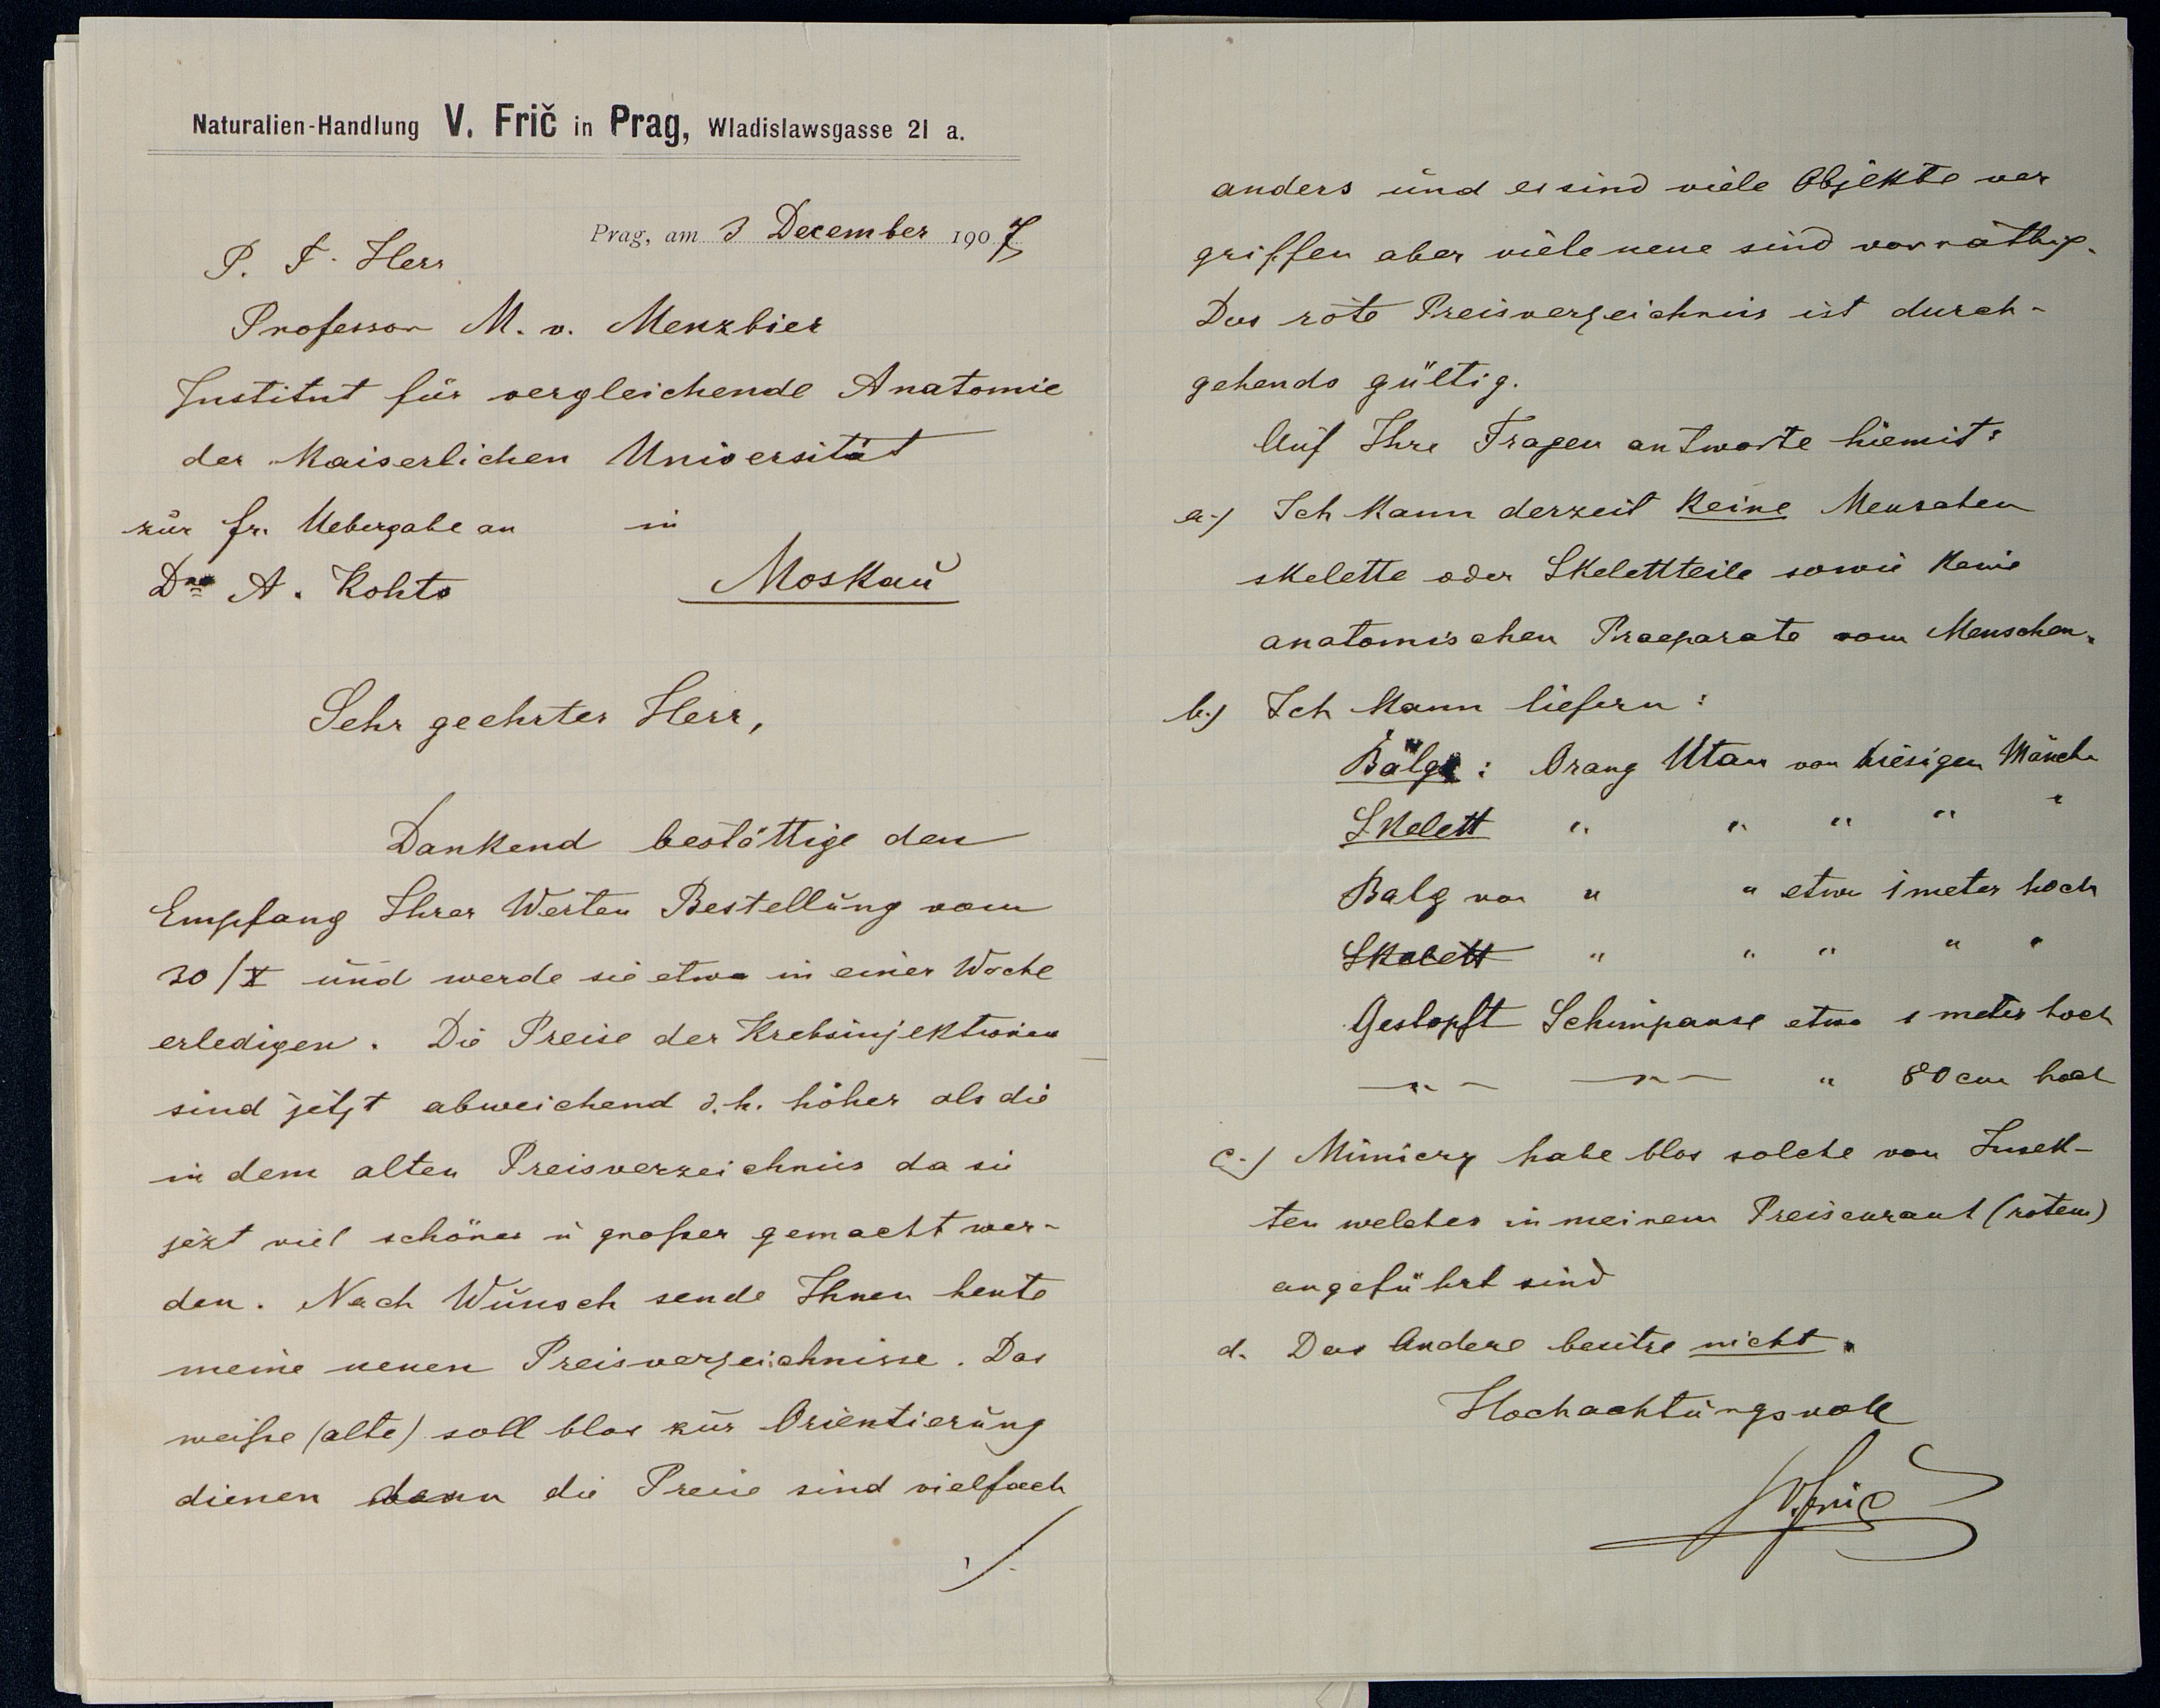 Naturalien-Handlung V. Frič in Prag, Wladislawsgasse 21 a.
Prag, am 3 December 1907
P. T. Herr
Professor M. v. Menzbier
Institut für vergleichende Anatomie
der Kaiserlichen Universität
zur fr. Uebergabe an in
Dra A. Kohts Moskau
Sehr geehrter Herr,
Dankend bestättige den
Empfang Ihrer Werten Bestellung vom
30/X und werde sie etwa in einer Woche
erledigen. Die Preise der Krebsinjektionen
sind jetzt abweichend d.h. höher als die
in dem alten Preisverzeichnis da sie
jezt viel schöner u großer gemacht wer-
den. Nach Wunsch sende Ihnen heute
meine neuen Preisverzeichnisse. Das
weiße (alte) soll blos zur Orientierung
dienen denn die Preise sind vielfach
./.
anders und es sind viele Objekte ver
griffen aber viele neue sind vorräthig.
Das rote Preisverzeichnis ist durch-
gehends gültig.
Auf Ihre Fragen antworte hiemit:
a.) Ich kann derzeit keine Menschen
skelette oder Skelettteile sowie keine
anatomischen Praeparate vom Menschen.
b.) Ich kann liefern:
Bälge: Orang Utan von riesigen Mänch
Skelett " " " " "
Balg von " " etwa 1 meter hoch
Skelett " " " " "
Gestopft Schimpanse etwa 1 meter hoch
—"— —"— " 80 cm hoch
c.) Mimicry habe blos solche von Insek-
ten welches in meinem Preiscurant (rotem)
angeführt sind
d. Das Andere besitze nicht.
Hochachtungsvoll
V. Frič